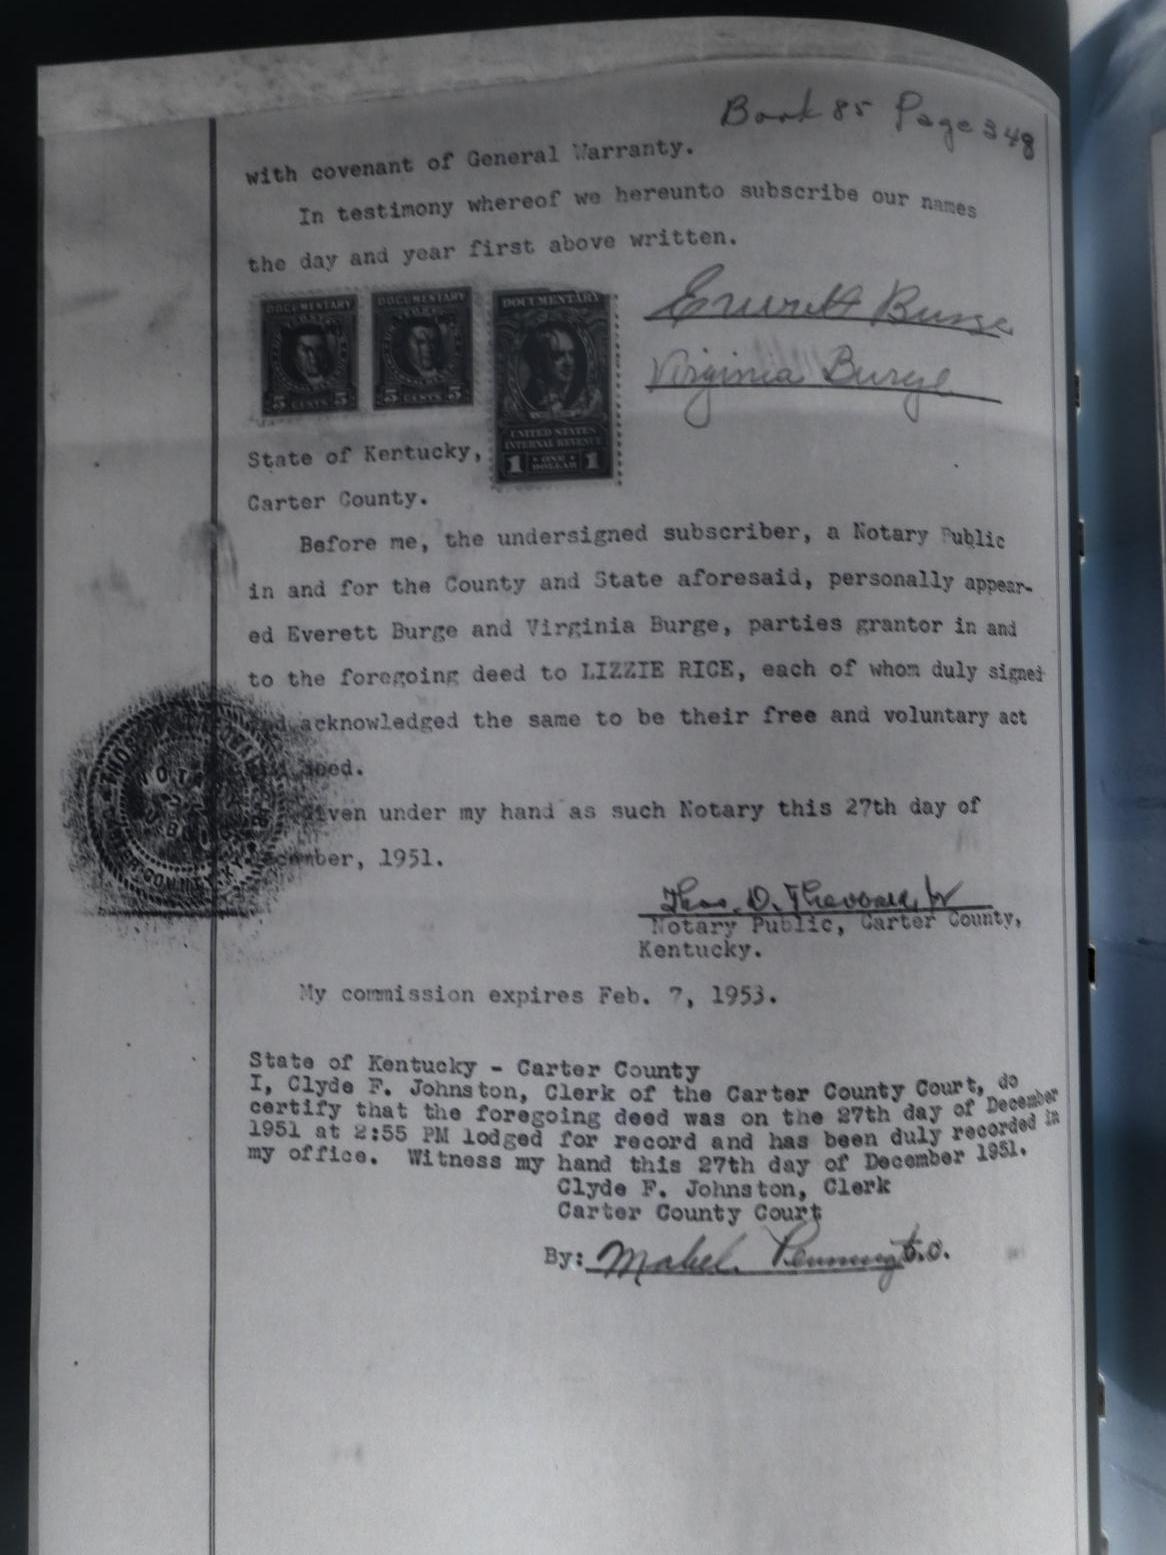 Book 85 Page 348
with covenant of General Warranty.
In testimony whereof we hereunto subscribe our names
the day and year first above written.
DOCUMENTARY
5 CENTS 5
DOCUMENTARY
5 CENTS 5
DOCUMENTARY
UNITED STATES
INTERNAL REVENUE
1 ONE DOLLAR 1
Everett Burge
Virginia Burge
State of Kentucky,
Carter County.
Before me, the undersigned subscriber, a Notary Public
in and for the County and State aforesaid, personally appear-
ed Everett Burge and Virginia Burge, parties grantor in and
to the foregoing deed to LIZZIE RICE, each of whom duly signed
acknowledged the same to be their free and voluntary act
deed.
Given under my hand as such Notary this 27th day of
December, 1951.
Thos. D.
Notary Public, Carter County,
Kentucky.
My commission expires Feb. 7, 1953.
State of Kentucky - Carter County
I, Clyde F. Johnston, Clerk of the Carter County Court, do
certify that the foregoing deed was on the 27th day of December
1951 at 2:55 PM lodged for record and has been duly recorded in
my office. Witness my hand this 27th day of December 1951.
Clyde F. Johnston, Clerk
Carter County Court
By: Mabel D.C.